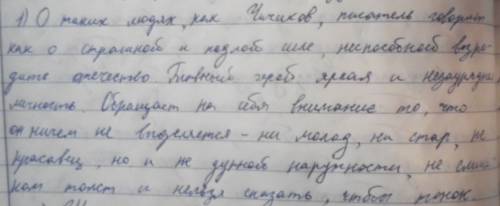 1) О таких людях, как Чичиков, писатель говорит,
как о страшной и подлой силе, неспособной возро-
дить отечество. Главный герой яркая и незаурядн
личность. Обращает на себя внимание то, что
он ничем не выделяется - ни молод, ни стар, не
красавец, но и не дурной наружности, не слиш
ком толст и нельзя сказать, чтобы тонок.